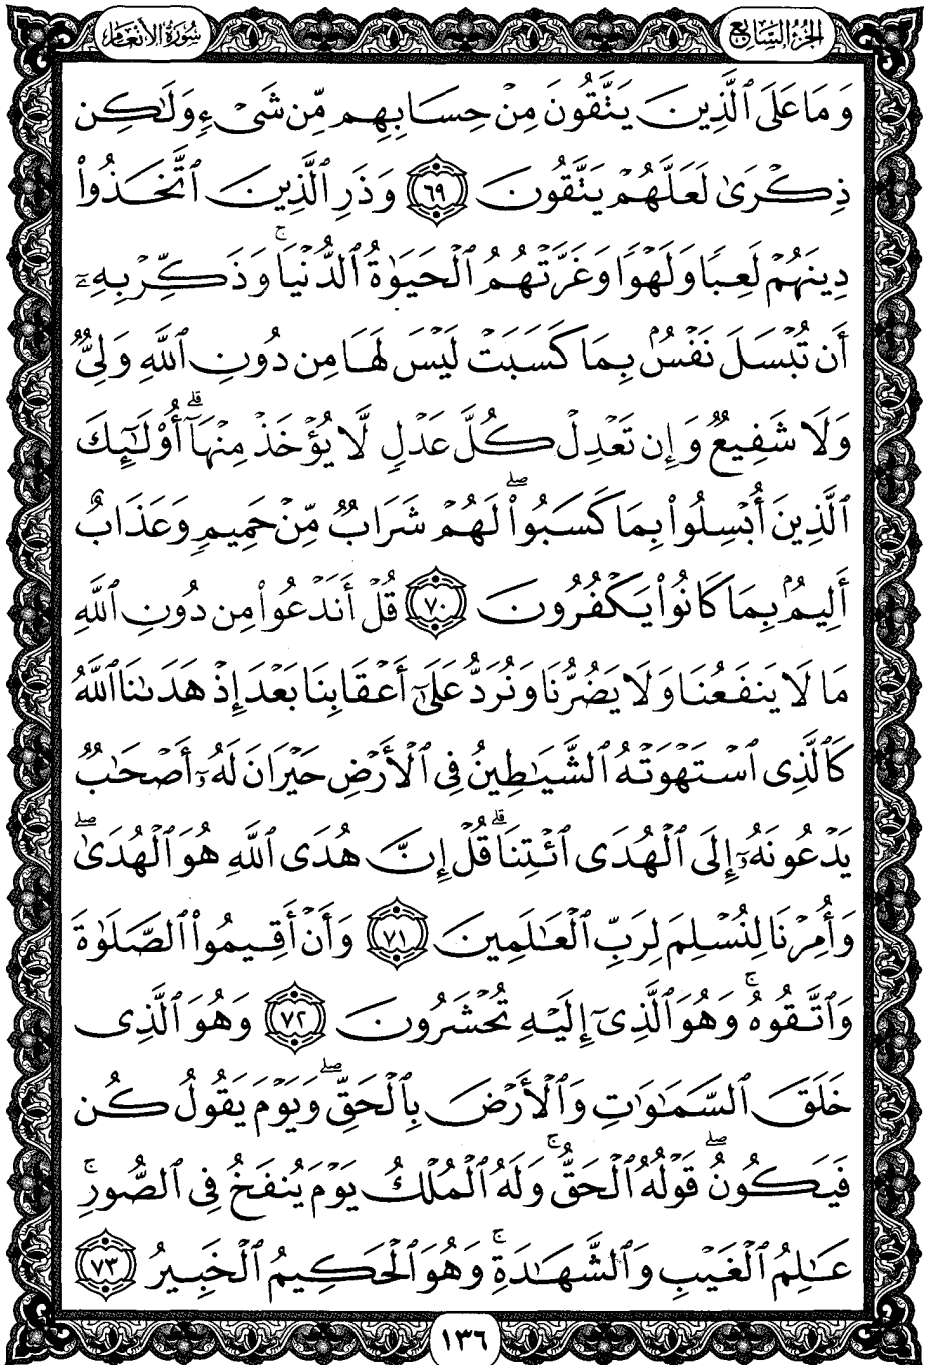 الجزء السابع
سورة الأنعام
وَمَا عَلَى ٱلَّذِينَ يَتَّقُونَ مِنْ حِسَابِهِم مِّن شَىْءٍ وَلَٰكِن
ذِكْرَىٰ لَعَلَّهُمْ يَتَّقُونَ ٦٩ وَذَرِ ٱلَّذِينَ ٱتَّخَذُوا۟
دِينَهُمْ لَعِبًا وَلَهْوًا وَغَرَّتْهُمُ ٱلْحَيَوٰةُ ٱلدُّنْيَا ۚ وَذَكِّرْ بِهِۦٓ
أَن تُبْسَلَ نَفْسٌۢ بِمَا كَسَبَتْ لَيْسَ لَهَا مِن دُونِ ٱللَّهِ وَلِىٌّ
وَلَا شَفِيعٌ وَإِن تَعْدِلْ كُلَّ عَدْلٍ لَّا يُؤْخَذْ مِنْهَآ ۗ أُو۟لَٰٓئِكَ
ٱلَّذِينَ أُبْسِلُوا۟ بِمَا كَسَبُوا۟ ۖ لَهُمْ شَرَابٌ مِّنْ حَمِيمٍ وَعَذَابٌ
أَلِيمٌۢ بِمَا كَانُوا۟ يَكْفُرُونَ ٧٠ قُلْ أَنَدْعُوا۟ مِن دُونِ ٱللَّهِ
مَا لَا يَنفَعُنَا وَلَا يَضُرُّنَا وَنُرَدُّ عَلَىٰٓ أَعْقَابِنَا بَعْدَ إِذْ هَدَىٰنَا ٱللَّهُ
كَٱلَّذِى ٱسْتَهْوَتْهُ ٱلشَّيَٰطِينُ فِى ٱلْأَرْضِ حَيْرَانَ لَهُۥٓ أَصْحَٰبٌ
يَدْعُونَهُۥٓ إِلَى ٱلْهُدَى ٱئْتِنَا ۗ قُلْ إِنَّ هُدَى ٱللَّهِ هُوَ ٱلْهُدَىٰ ۖ
وَأُمِرْنَا لِنُسْلِمَ لِرَبِّ ٱلْعَٰلَمِينَ ٧١ وَأَنْ أَقِيمُوا۟ ٱلصَّلَوٰةَ
وَٱتَّقُوهُ ۚ وَهُوَ ٱلَّذِىٓ إِلَيْهِ تُحْشَرُونَ ٧٢ وَهُوَ ٱلَّذِى
خَلَقَ ٱلسَّمَٰوَٰتِ وَٱلْأَرْضَ بِٱلْحَقِّ ۖ وَيَوْمَ يَقُولُ كُن
فَيَكُونُ ۖ قَوْلُهُ ٱلْحَقُّ ۚ وَلَهُ ٱلْمُلْكُ يَوْمَ يُنفَخُ فِى ٱلصُّورِ ۚ
عَٰلِمُ ٱلْغَيْبِ وَٱلشَّهَٰدَةِ ۚ وَهُوَ ٱلْحَكِيمُ ٱلْخَبِيرُ ٧٣
١٣٦